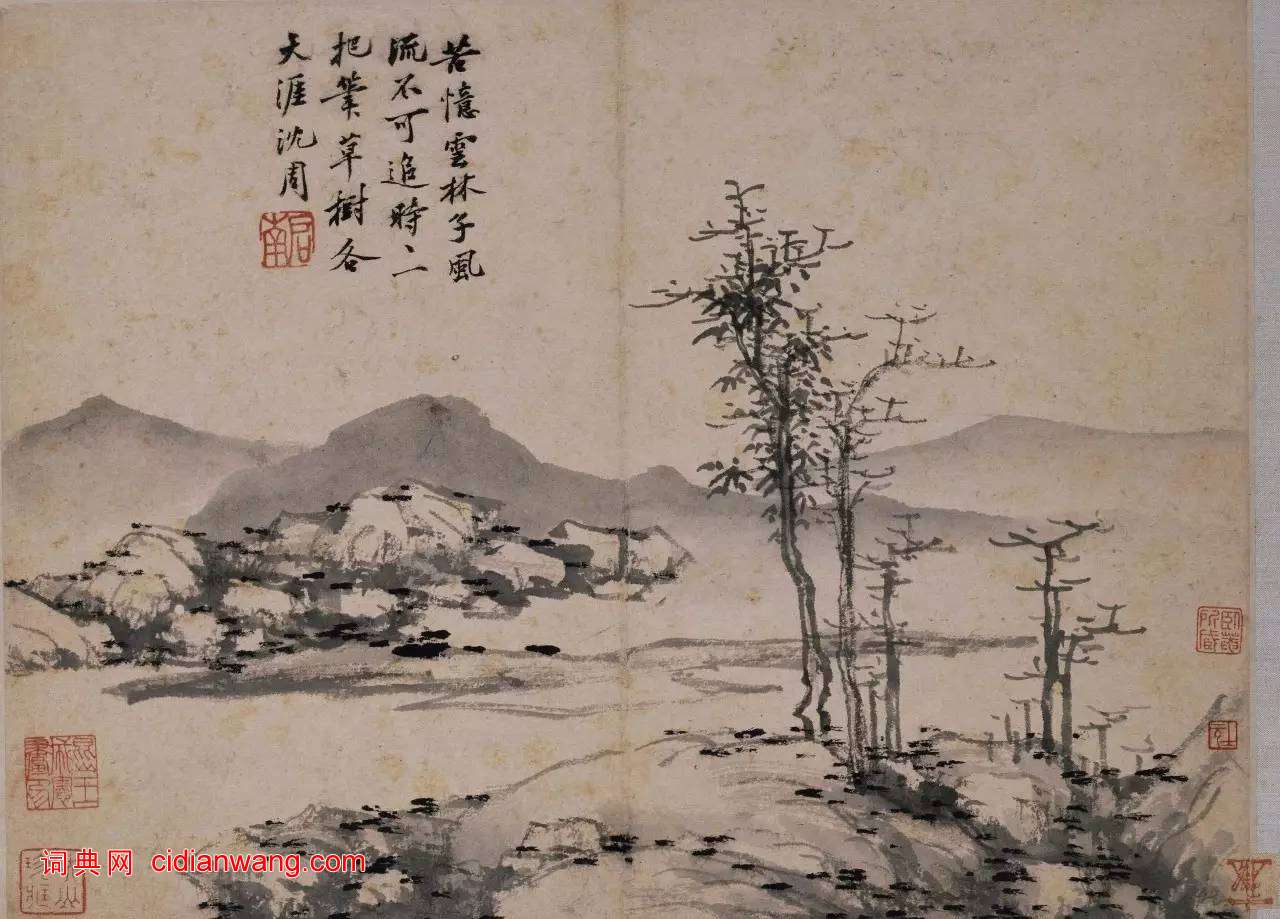 苦憶雲林子風
流不可追時二
把筆草樹各
天涯沈周
啟南
词典网 cidianwang.com